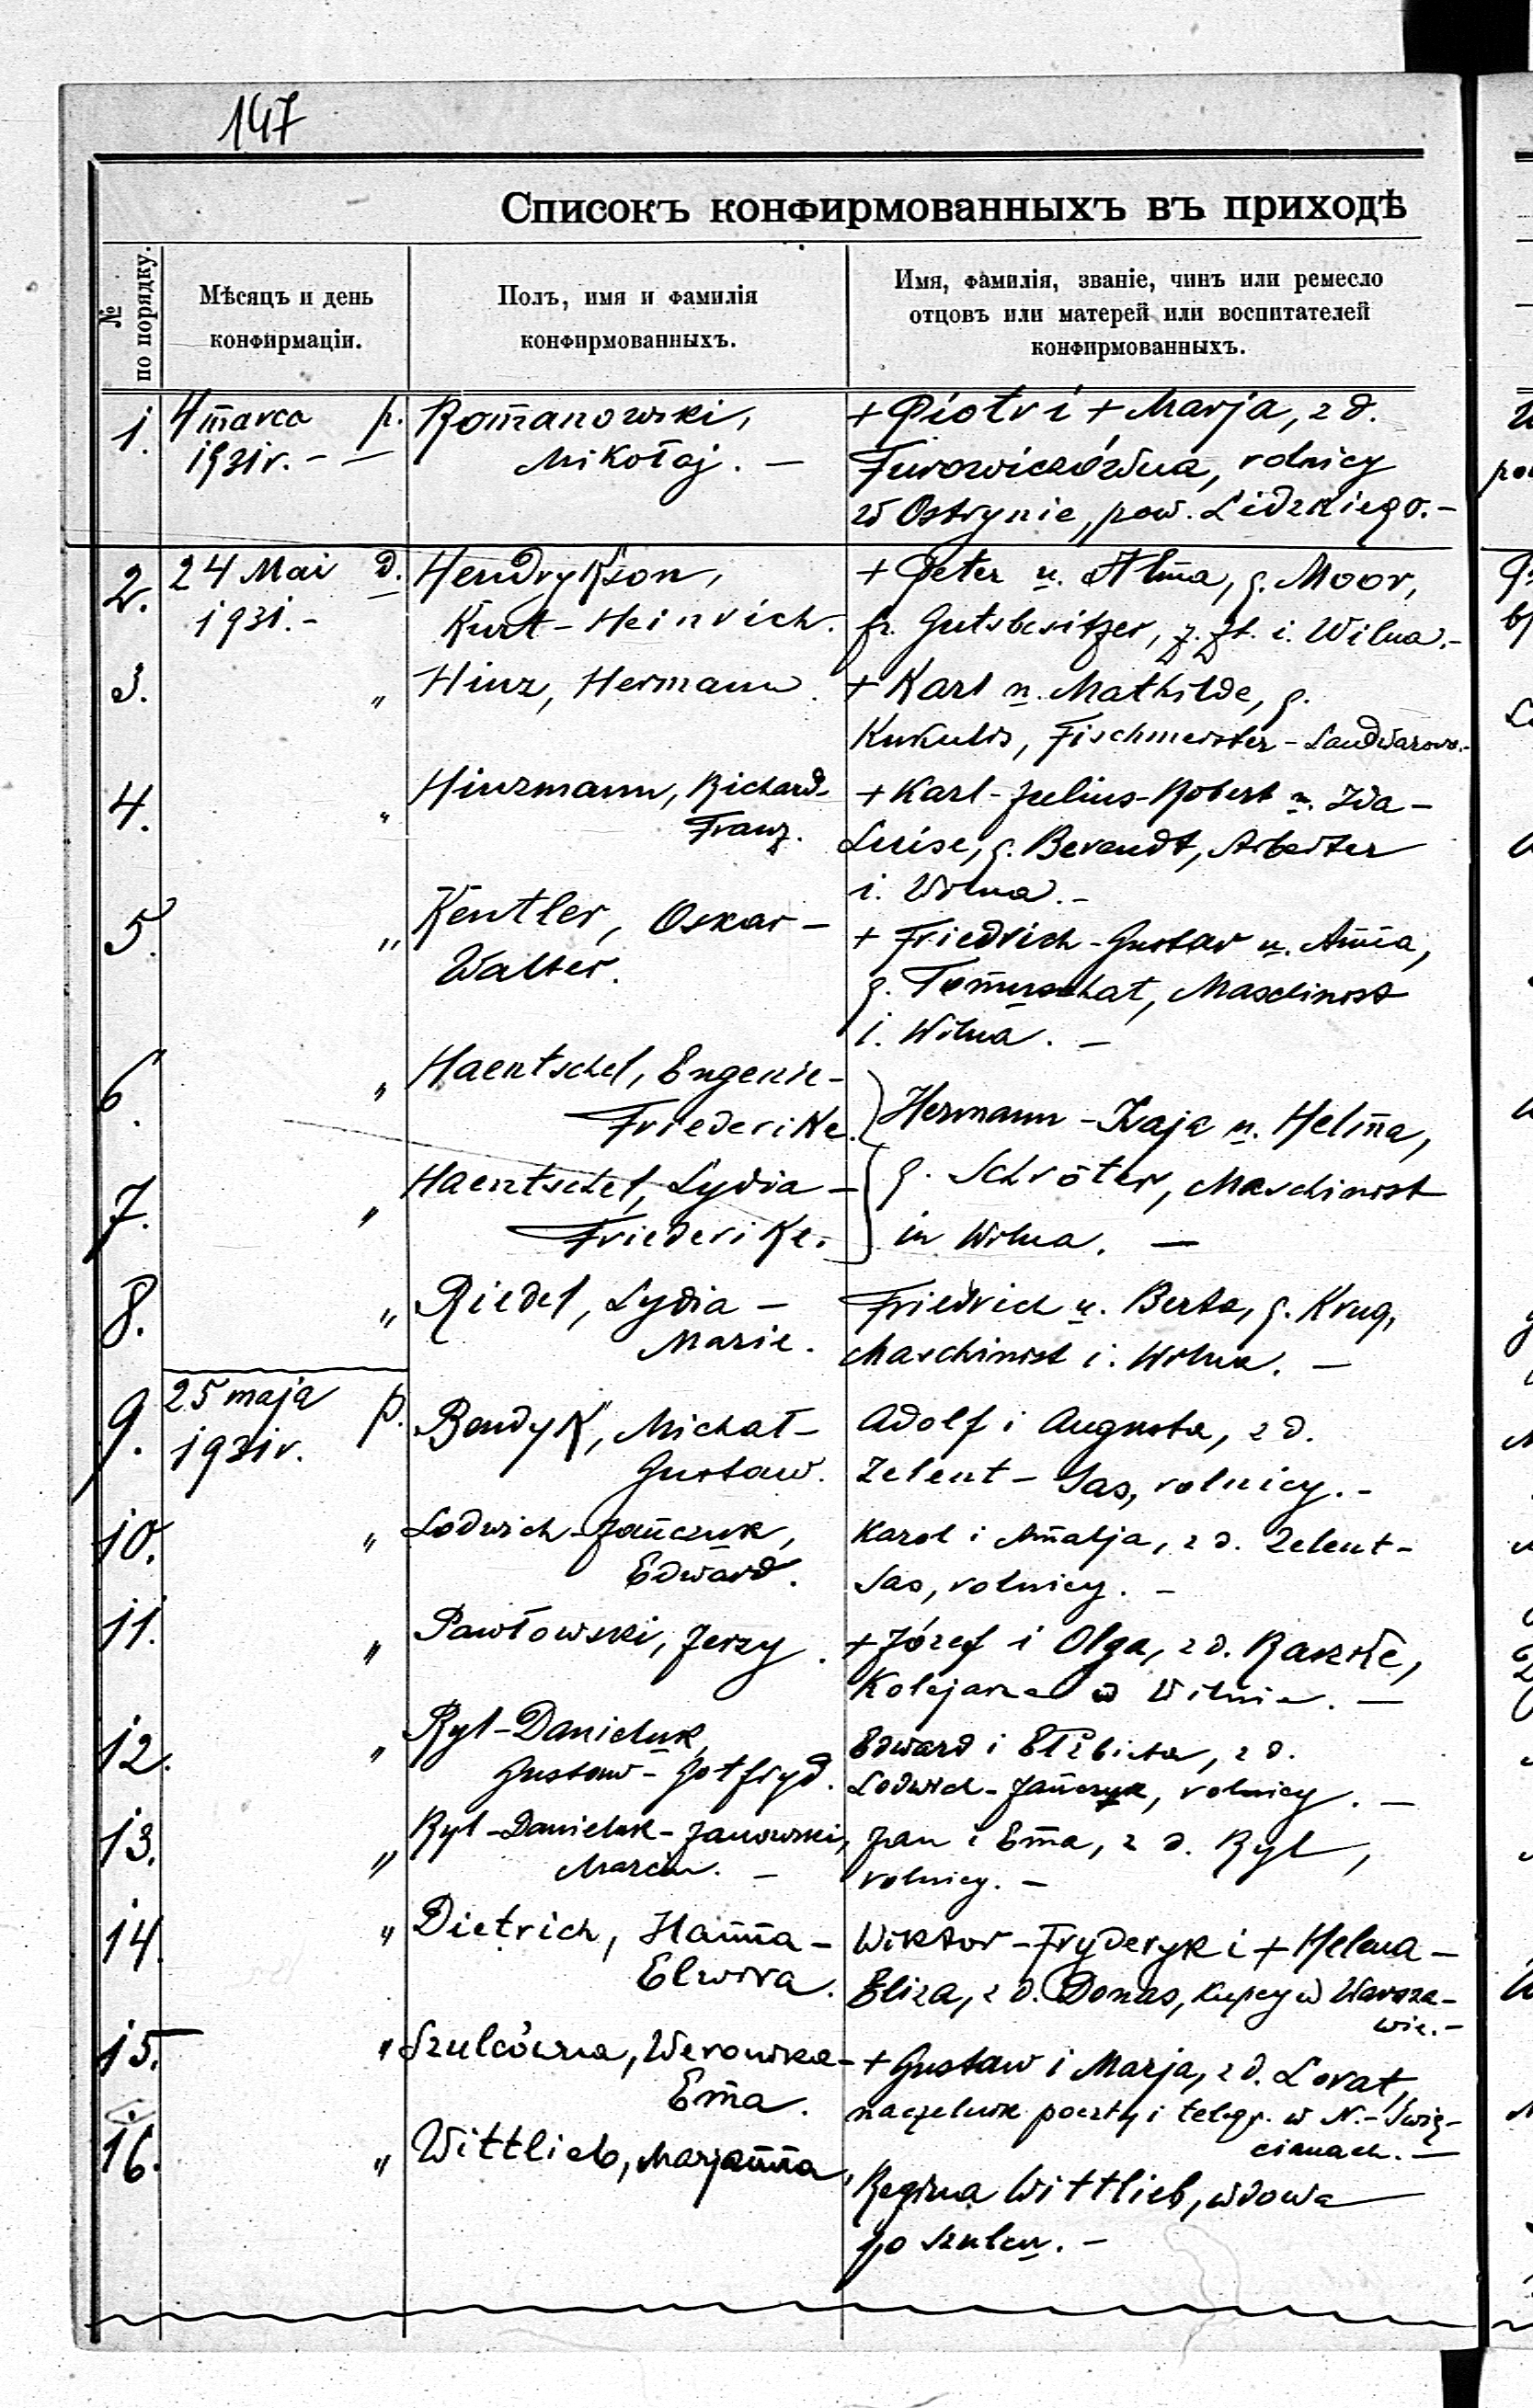 147
Списокъ конфирмованныхъ въ приходѣ
№ по порядку.
Мѣсяцъ и день
конфирмаціи.
Полъ, имя и фамилія
конфирмованныхъ.
Имя, фамилія, званіе, чинъ или ремесло
отцовъ или матерей или воспитателей
конфирмованныхъ.
1. 4 marca p. Romanowski, + Piotr i + Marja, z d.
1931 r. - — Mikołaj. — Turowiczówna, rolnicy
w Ostrynie, pow. Lidzkiego. -
2. 24 Mai d. Hendrykson, + Peter u. Alma, g. Moor,
1931. - Kurt-Heinrich. fr. Gutsbesitzer, z. Zt. i. Wilna. -
3. " Hinz, Hermann. + Karl u. Mathilde, g.
Kukulis, Fischmeister - Landwarowo. -
4. " Hinzmann, Richard- + Karl-Julius-Robert u. Ida-
Franz. Luise, g. Berendt, Arbeiter
i. Wilna. -
5. " Kentler, Oskar- + Friedrich-Gustav u. Anna,
Walter. g. Tomuschat, Maschinist
i. Wilna. —
6. " Haentschel, Eugenie-
Friederike. Hermann - u. Helma,
7. " Haentschel, Lydia- g. Schröter, Maschinist
Friederike. in Wilna. —
8. " Riedel, Lydia- Friedrich u. Berta, g. Krug,
Marie. Maschinist i. Wilna. —
9. 25 maja p. Bendyk, Michał- Adolf i Augusta, z d.
1931 r. Gustaw. Zelent-Sas, rolnicy. -
10. " Lodwich-Jańczuk, Karol i Amalja, z d. Zelent-
Edward. Sas, rolnicy. -
11. " Pawłowski, Jerzy. + Józef i Olga, z d. Raszke,
Kolejarze w Wilnie. —
12. " Ryl-Danieluk, Edward i Elżbieta, z d.
Gustaw-Gotfryd. Lodwich-Jańczyk, rolnicy. —
13. " Ryl-Danieluk-Janowski, Jan i Ema, z d. Ryl,
Marcin. - rolnicy. —
14. " Dietrich, Hanna- Wiktor-Fryderyk i + Helena-
Elwira. Eliza, z d. Donas, kupcy w Warsza-
wie. -
15. " Szulcówna, Weronika- + Gustaw i Marja, z d. Lorat,
Ema. naczelnik poczty i telegr. w N.-Świę-
cianach. —
16. " Wittlieb, Marjanna, Regina Wittlieb, wdowa
po szulcu. -